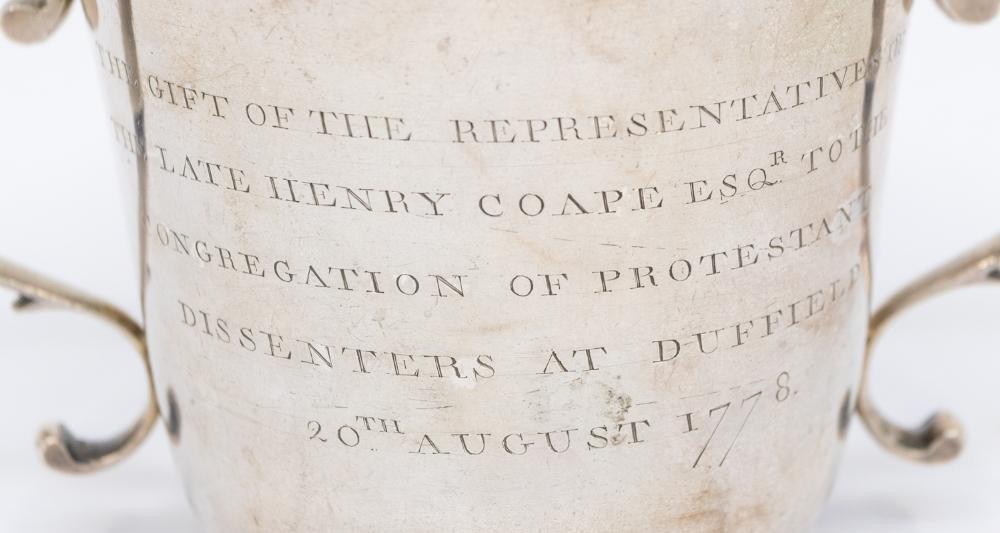 THE GIFT OF THE REPRESENTATIVES OF
THE LATE HENRY COAPE ESQR. TO THE
CONGREGATION OF PROTESTANT
DISSENTERS AT DUFFIELD
20TH AUGUST 1778.